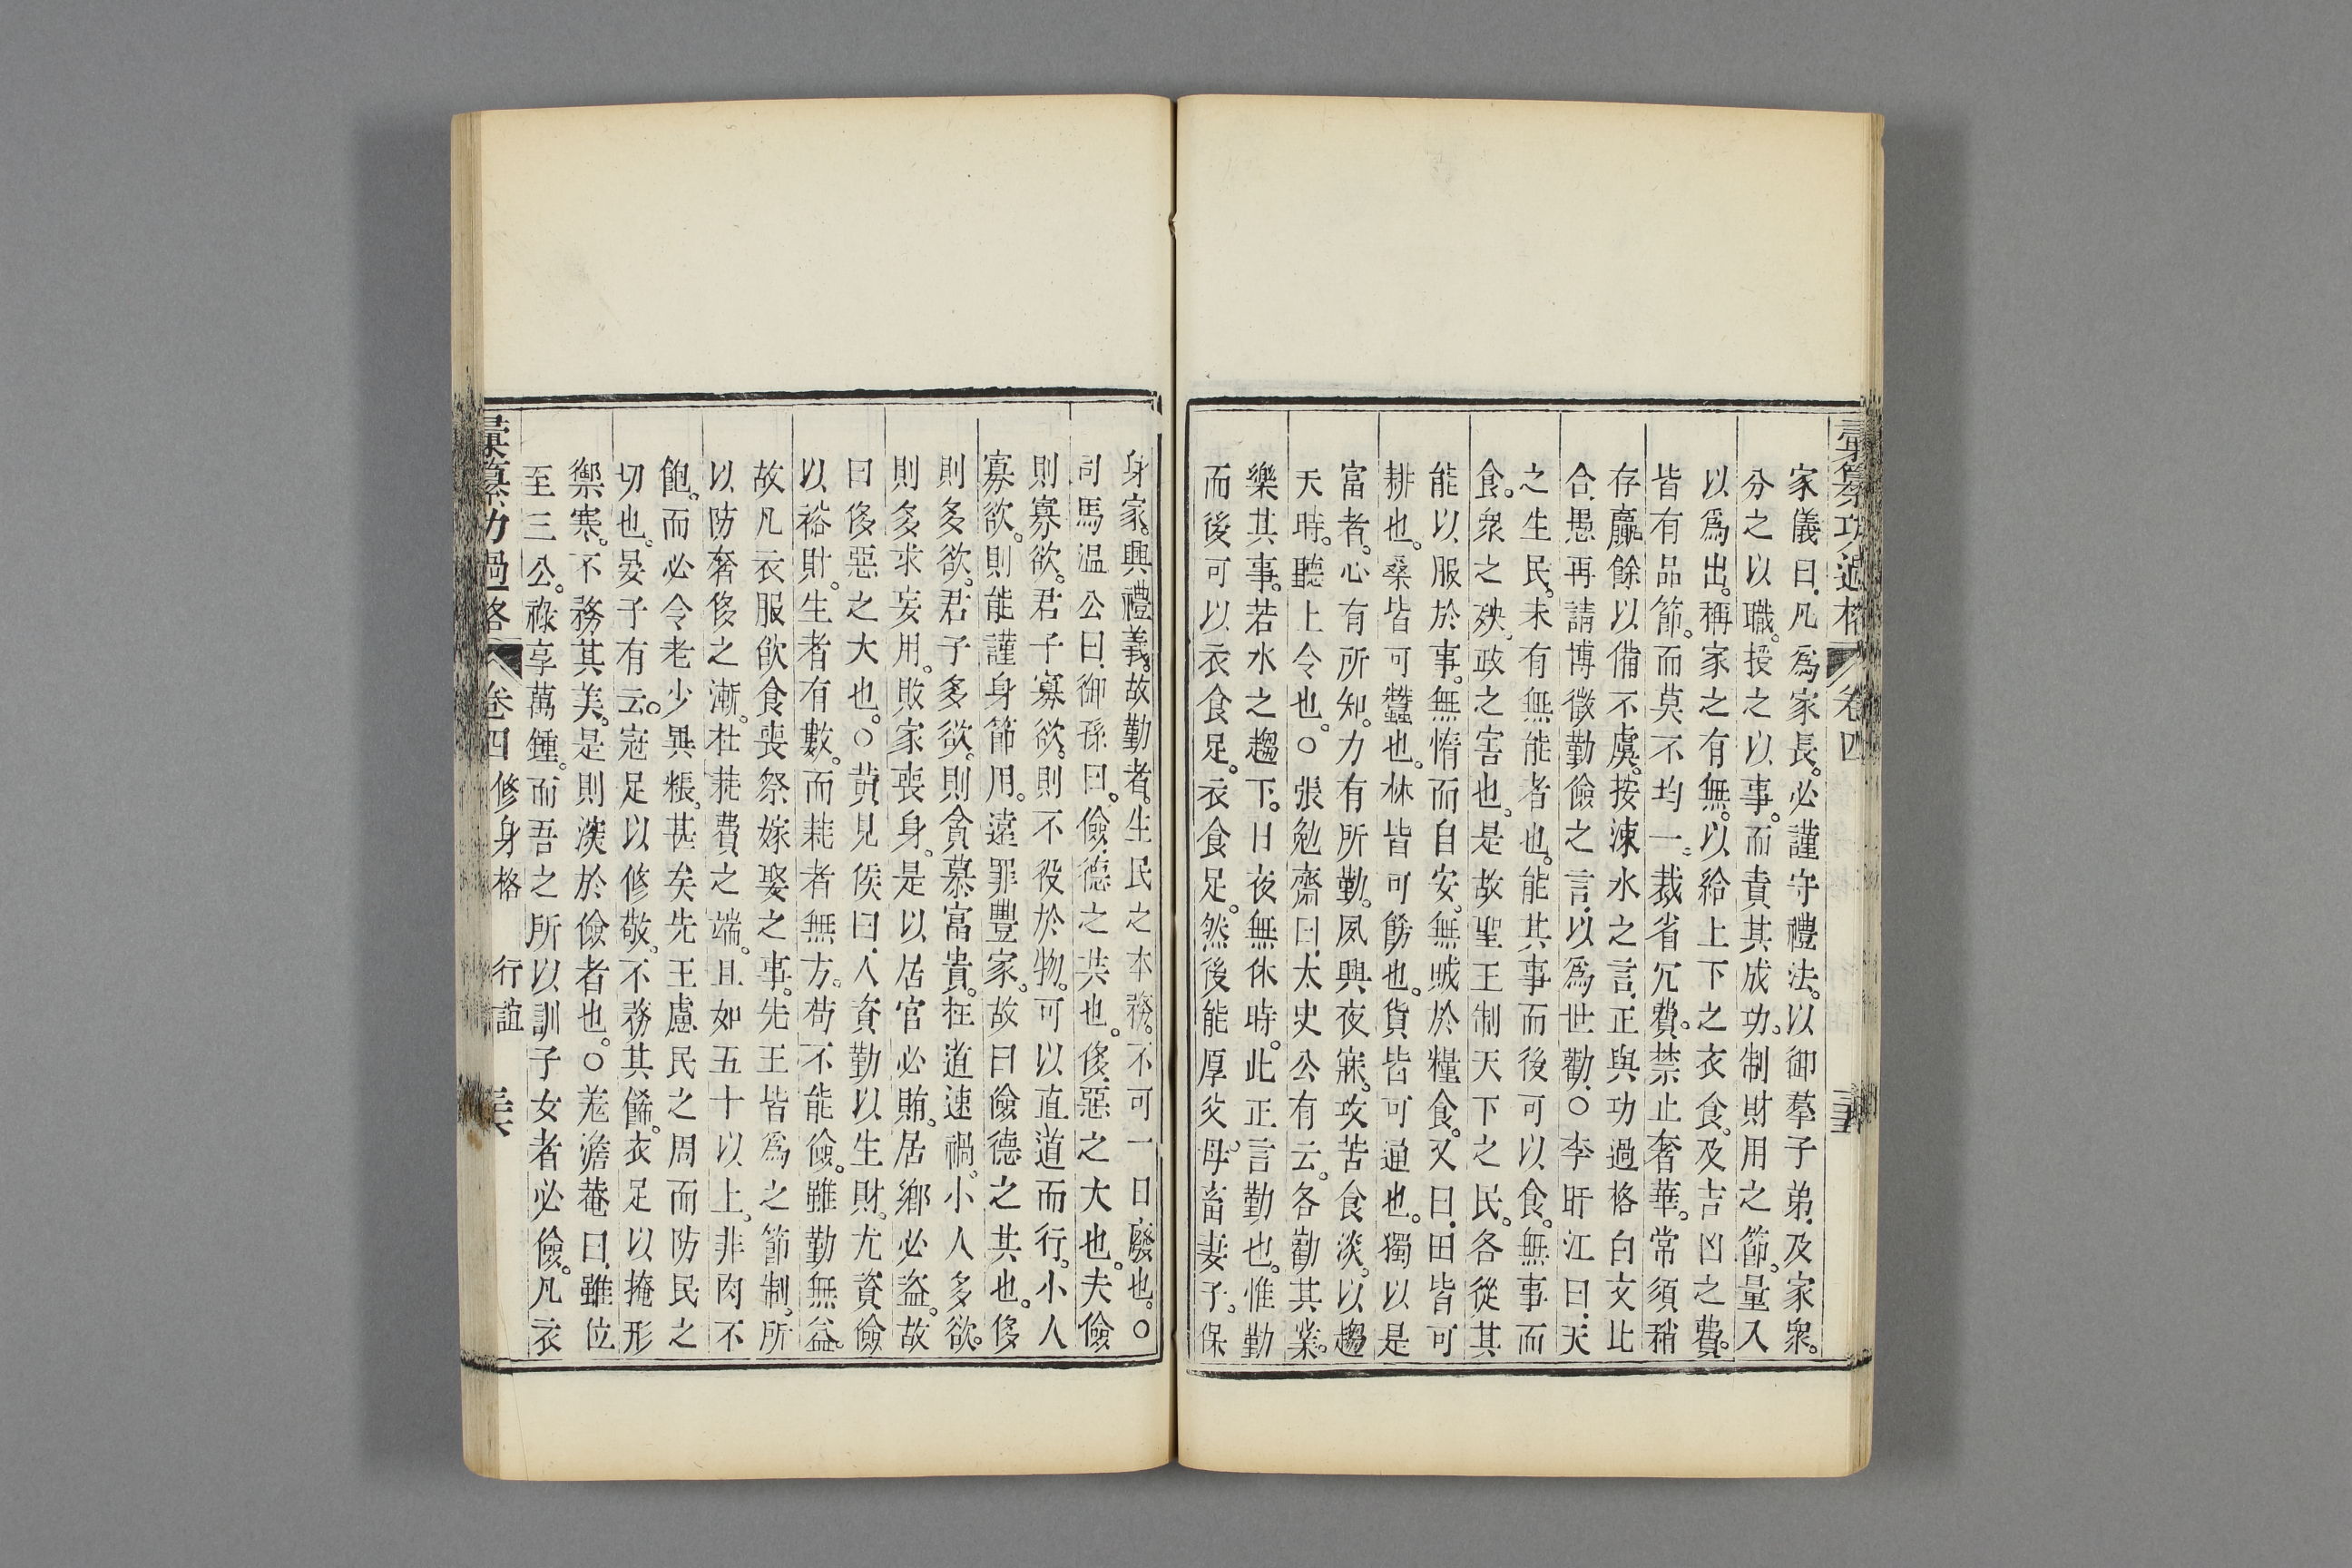 彙纂功過格 卷四
家儀曰凡爲家長必謹守禮法以御羣子弟及家衆
分之以職授之以事而責其成功制財用之節量入
以爲出稱家之有無以給上下之衣食及吉凶之費
皆有品節而莫不均一裁省冗費禁止奢華常須稍
存羸餘以備不虞按涑水之言正與功過格白文比
合愚再請博徵勤儉之言以爲世勸○李旴江曰天
之生民未有無能者也能其事而後可以食無事而
食衆之殃政之害也是故聖王制天下之民各從其
能以服於事無惰而自安無賊於糧食又曰田皆可
耕也桑皆可蠶也林皆可餝也貨皆可通也獨以是
富者心有所知力有所勤夙興夜寐攻苦食淡以趨
天時聽上令也○張勉齋曰太史公有云各勸其業
樂其事若水之趨下日夜無休時此正言勤也惟勤
而後可以衣食足衣食足然後能厚父母畜妻子保
身家興禮義故勤者生民之本務不可一日廢也○
司馬温公曰御孫曰儉德之共也侈惡之大也夫儉
則寡欲君子寡欲則不役於物可以直道而行小人
寡欲則能謹身節用遠罪豐家故曰儉德之共也侈
則多欲君子多欲則貪慕富貴枉道速禍小人多欲
則多求妄用敗家喪身是以居官必賄居鄉必盜故
曰侈惡之大也○黄見侯曰人資勤以生財尤資儉
以裕財生者有數而耗者無方苟不能儉雖勤無益
故凡衣服飲食喪祭嫁娶之事先王皆爲之節制所
以防奢侈之漸杜耗費之端且如五十以上非肉不
飽而必令老少異粻甚矣先王慮民之周而防民之
切也晏子有云冠足以修敬不務其餙衣足以掩形
禦寒不務其美是則深於儉者也○羗澹菴曰雖位
至三公祿享萬鍾而吾之所以訓子女者必儉凡衣
彙纂功過格 卷四 修身格 行誼